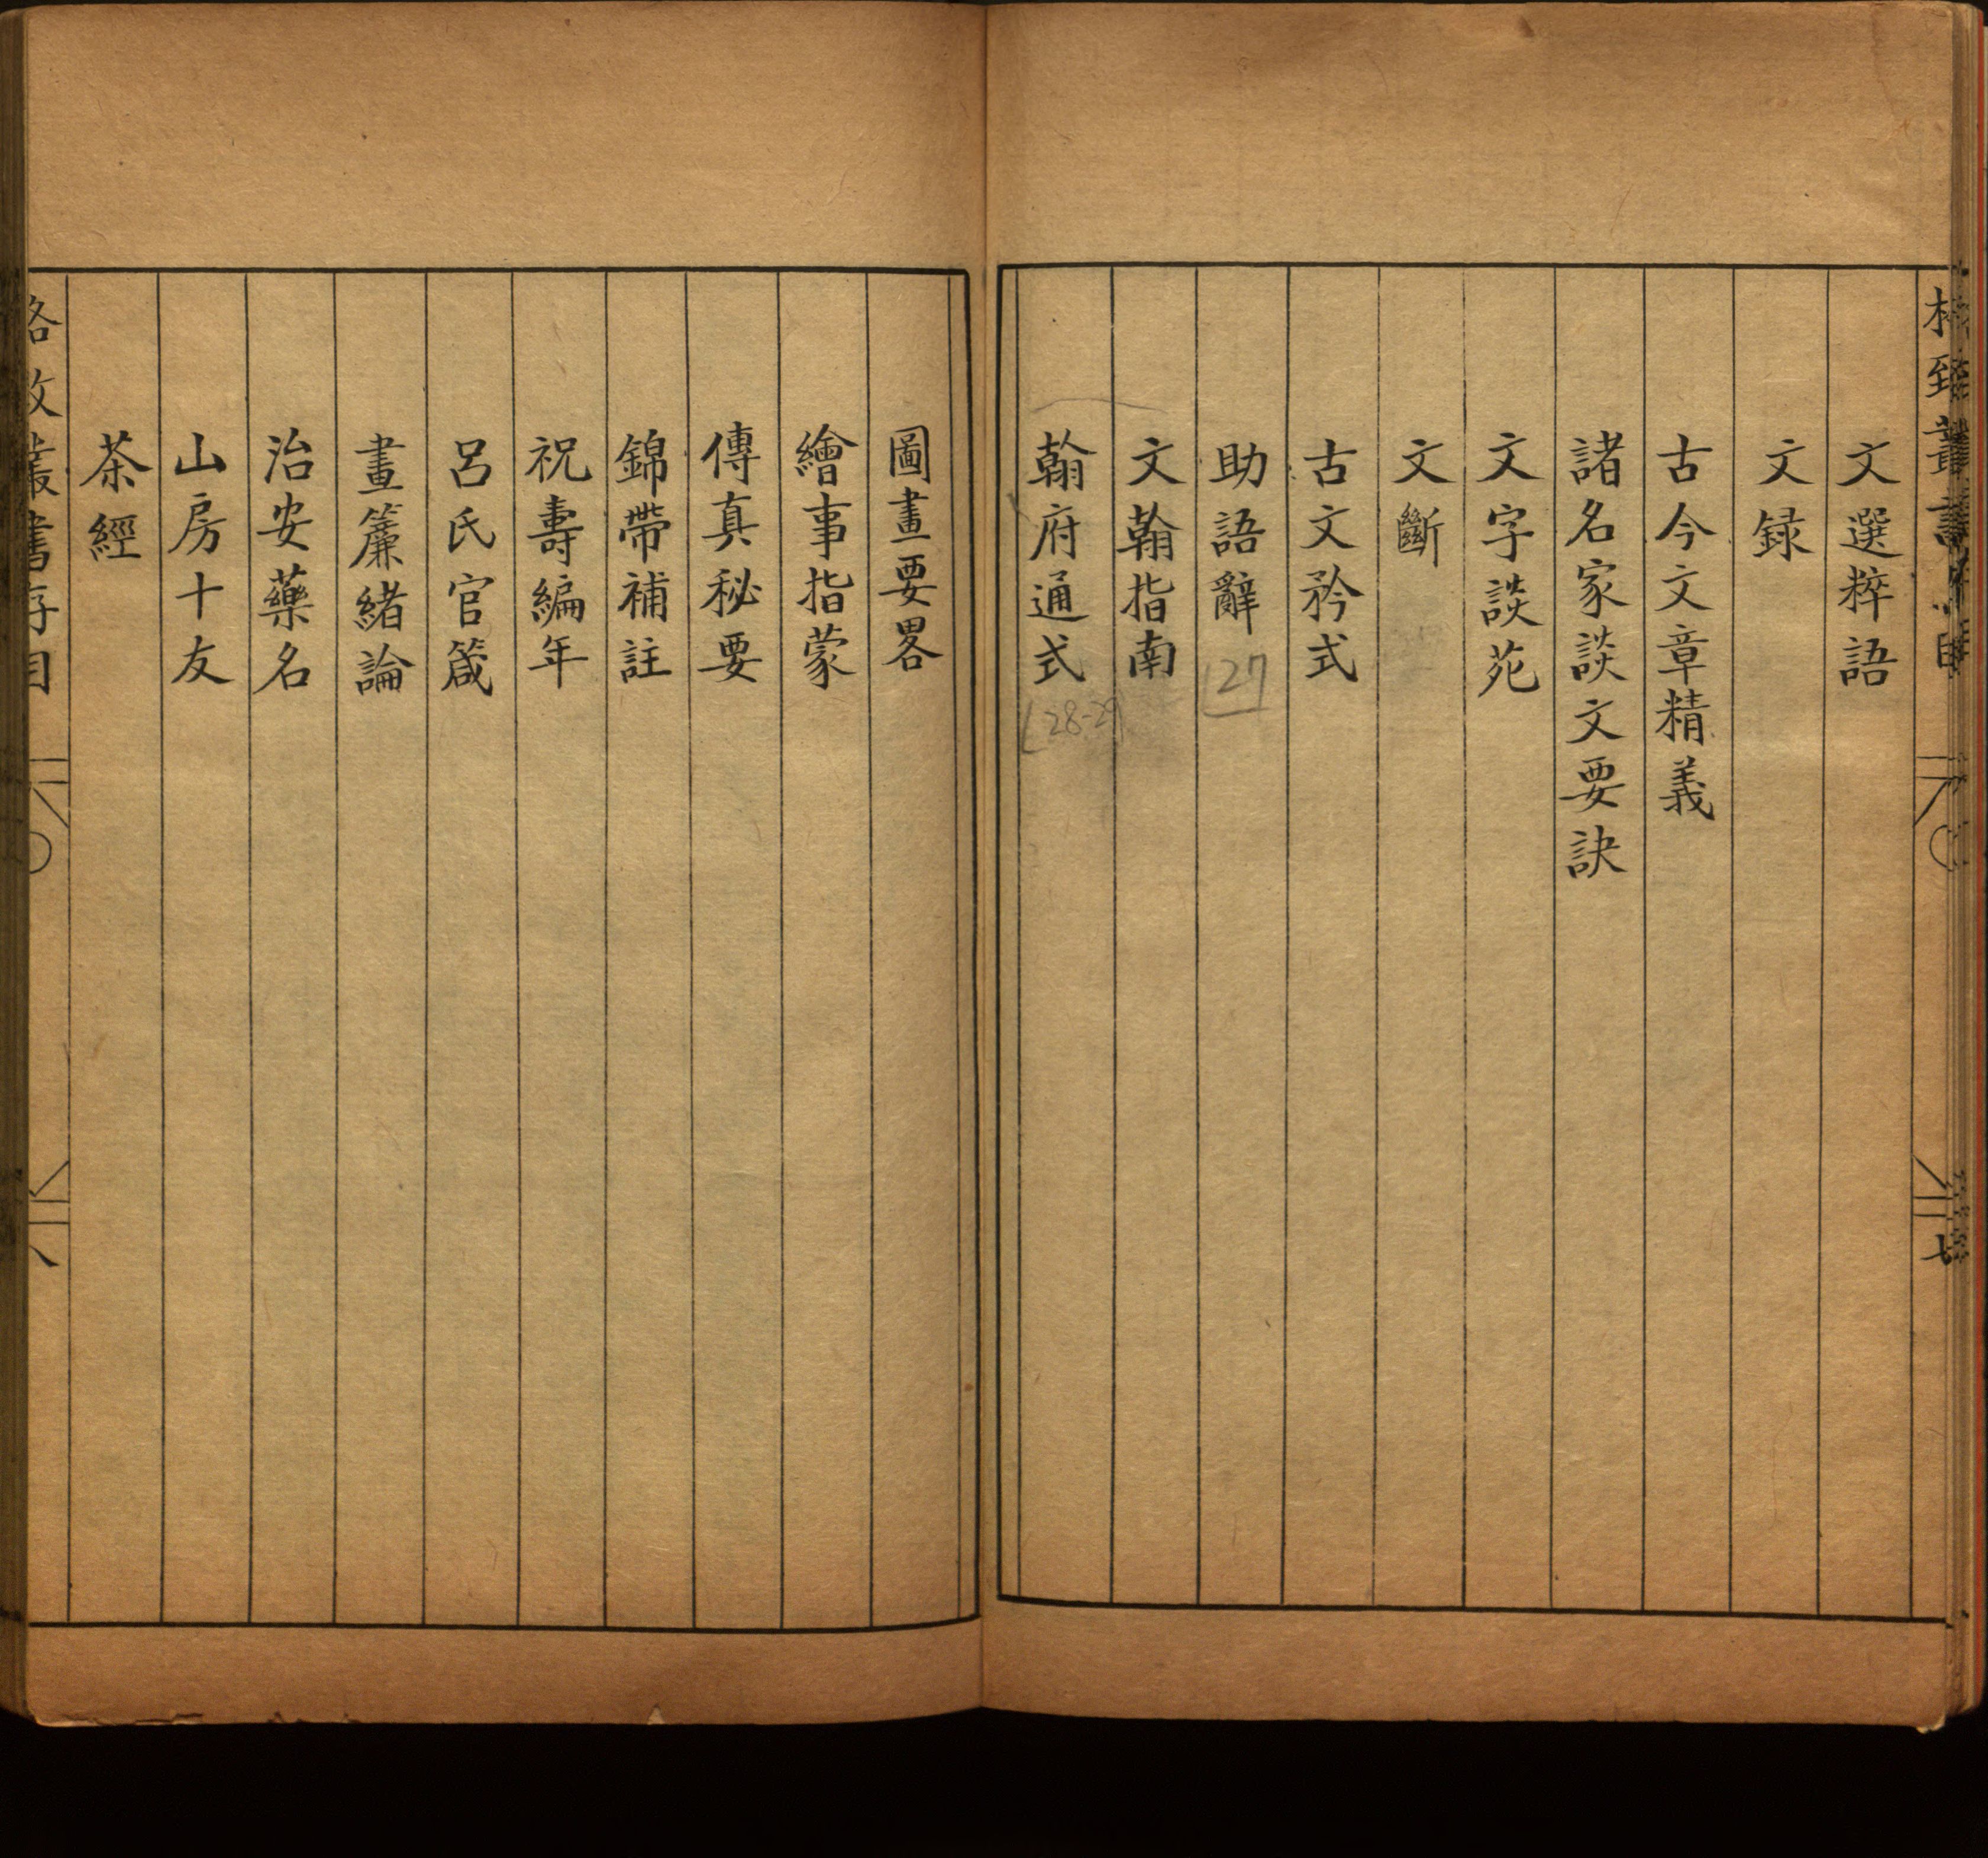 文選粹語
文録
古今文章精義
諸名家談文要訣
文字談苑
文斷
古文矜式
助語辭
27
文翰指南
翰府通式
28-29
圖畫要畧
繪事指蒙
傳真秘要
錦帶補註
祝壽編年
呂氏官箴
晝簾緒論
治安藥名
山房十友
茶經
格致叢書存目
八